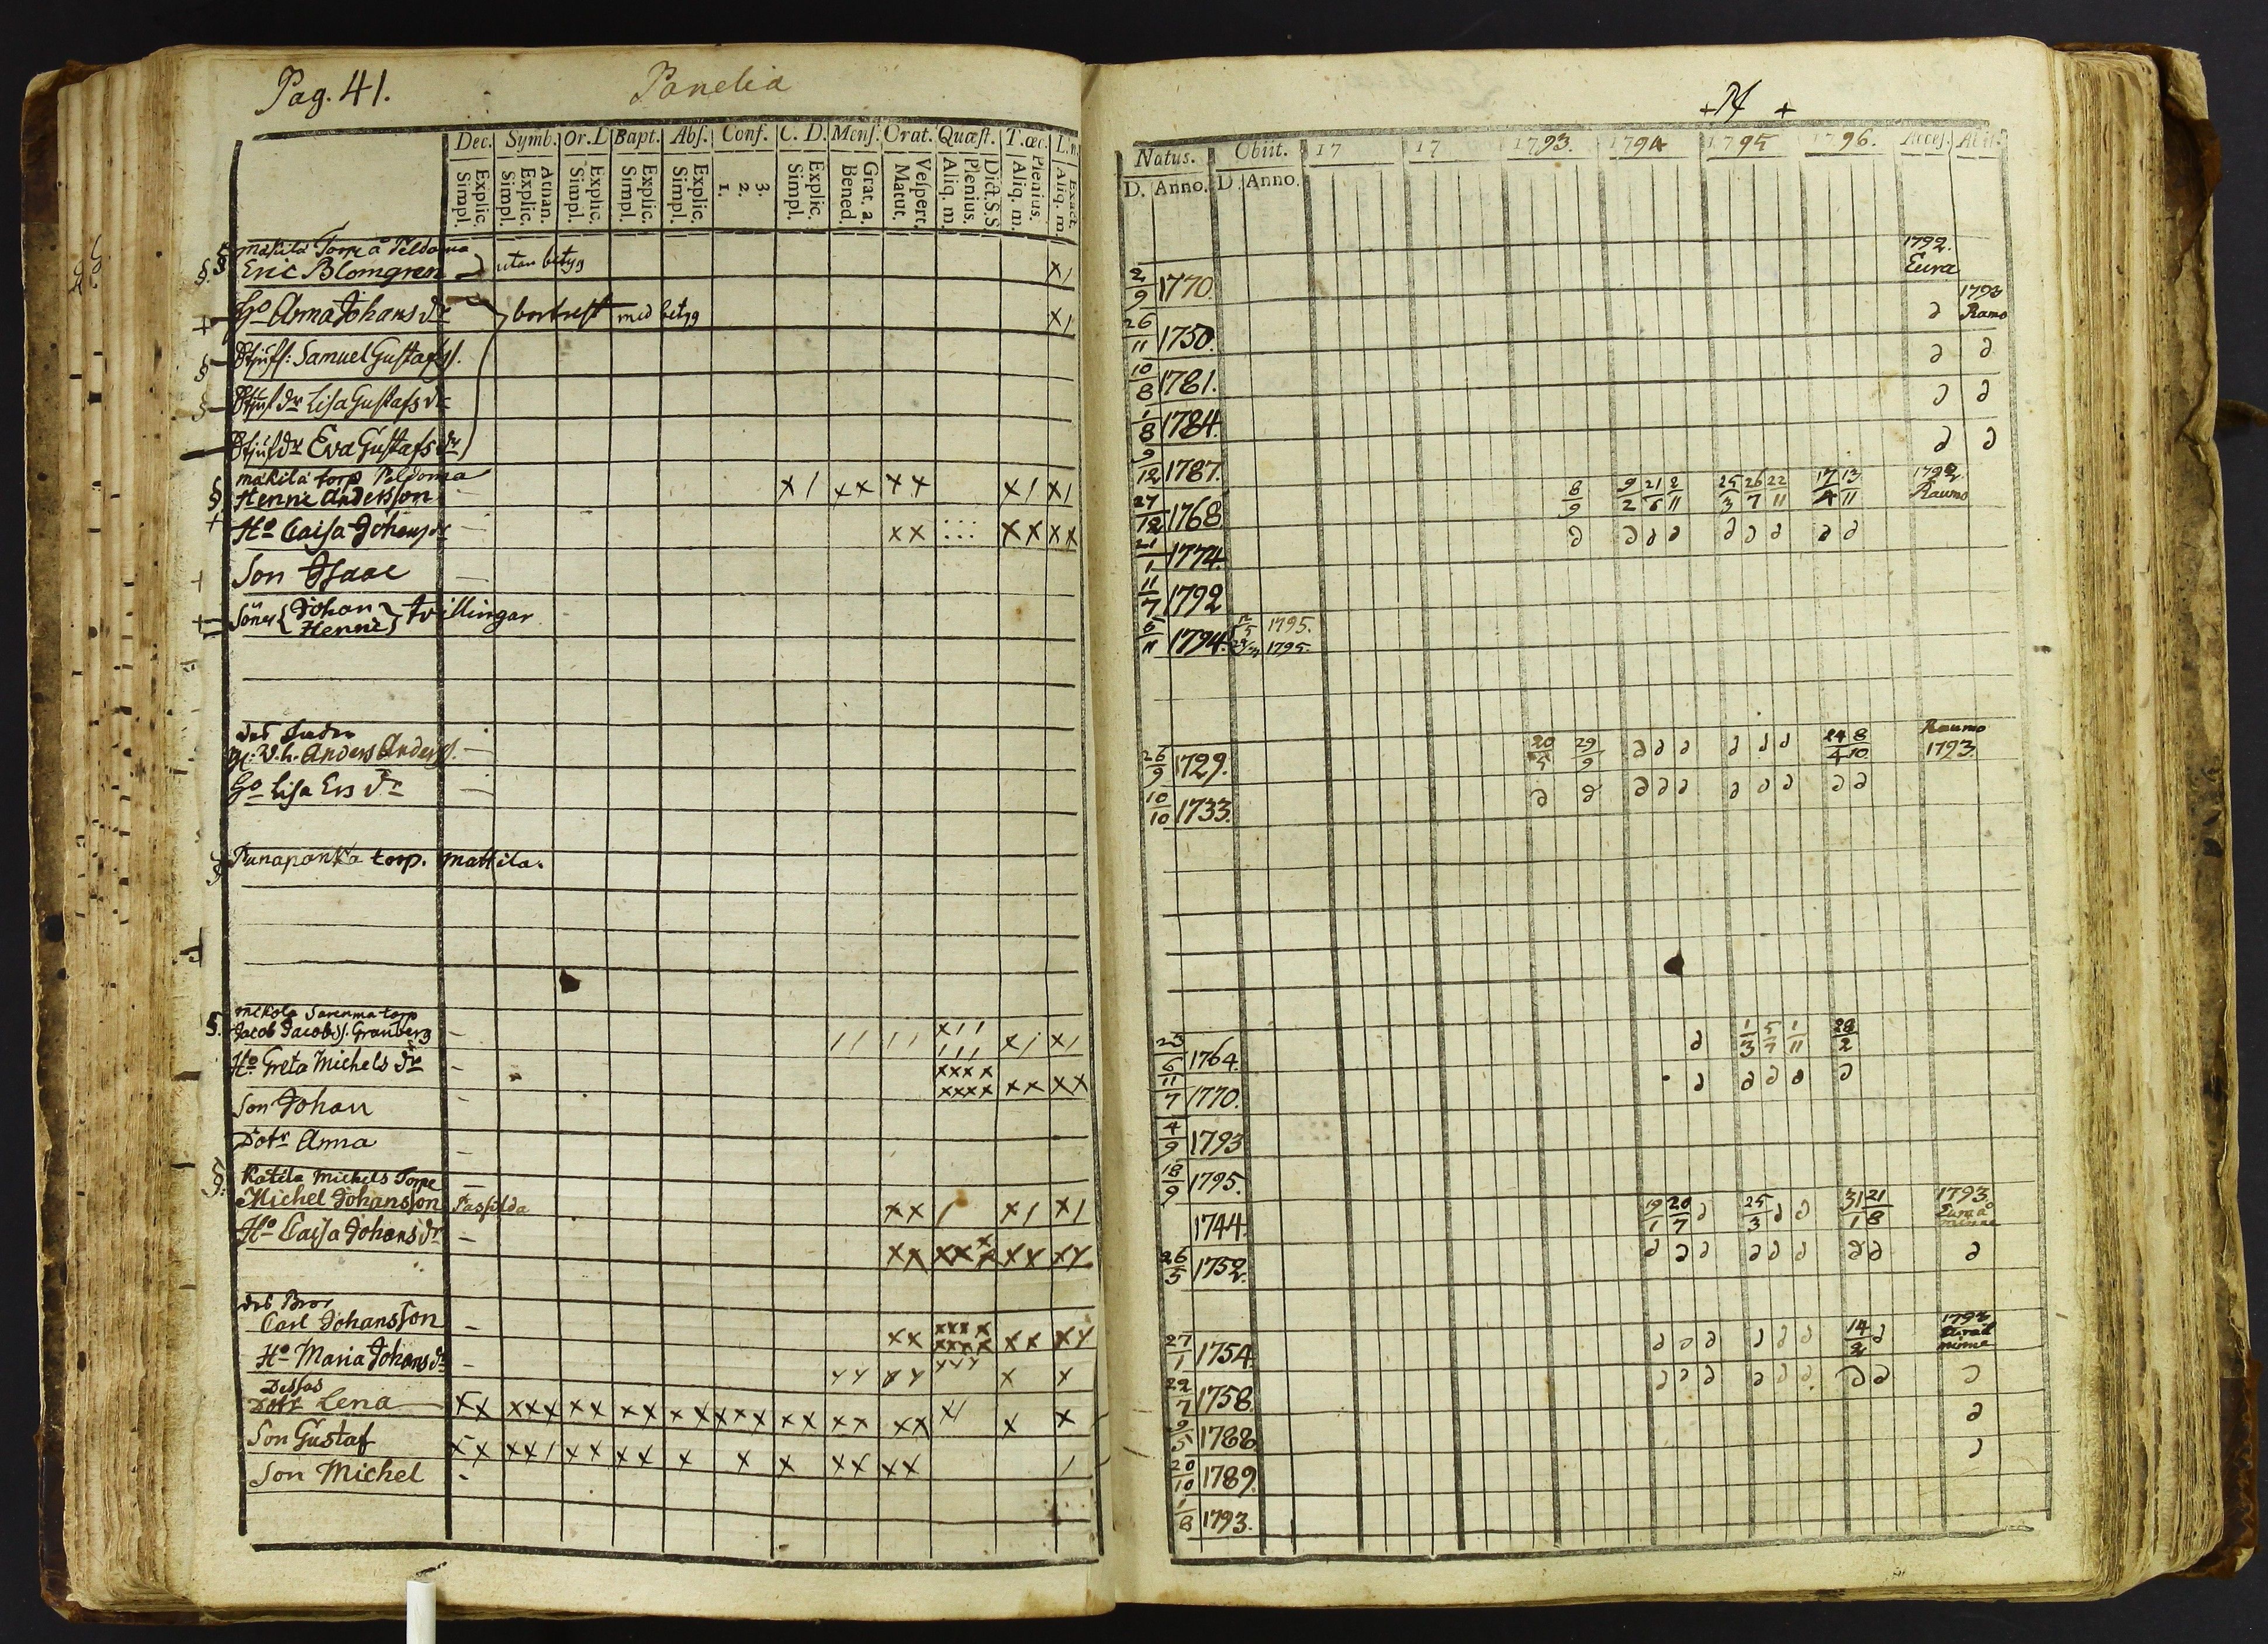 Pag. 41. Panelia
Dec. Symb. Or. D Bapt. Abs. Conf. C. D. Mens. Orat. Quæst. T. œc. L. n.
Explic. Simpl. Athan. Explic. Simpl. Explic. Simpl. Explic. Simpl. Explic. Simpl. 3. 2. 1. Explic. Simpl. Grat. a. Bened. Vespert. Matut. Dict. S.S. Plenius. Aliq. m. Plenius. Aliq. m. Exact. Aliq. m.
Makila Torp å Peldoma
§ Eric Blomgren utan betyg x/
Ho Anna Johans dr bortrest med betyg x/
§ Stjufs: Samuel Gustafss.
§ Stjuf dr Lisa Gustafs dr
Stjuf dr Eva Gustafs dr
makila torp Peldoma
§ Henric Andersson x/ xx xx x/ x/
+ Ho Caisa Johans dr xx xx xx
Son Isaac
Söner { Johan Henric } tvillingar
des fader
Anders Anderss.
Ho Lisa Ers dr
§ Punaponka torp. Mattila.
Mikola Sarenma torp
§. Jacob Jacobss. Granberg // // x// /// x/ x/
Ho Greta Michels dr xxxx xxxx xx xx
Son Johan
Dotr Anna
§. Katila Michels Torp
Michel Johansson xx / x/ x/
Ho Caisa Johans dr xx xxxx xx xx
des Bror
Carl Johansson xx xxxx xxxx xx xx
Ho Maria Johans dr xx xx xxx x x
Dessas
Dotr Lena xx xxx xx xx xx xxx xx xx xx x/ x x
Son Gustaf xx xx/ xx xx x x x xx xx /
Son Michel
Natus. Obiit. 17 17 1793. 1794 1795 1796. Acces. Abit.
D. Anno. D. Anno.
2/9 1770. 1792. Eura
26/11 1750. 1793 Ramo
10/8 1781.
1/8 1784.
9/12 1787.
27/12 1768 8/9 9/2 21/6 2/11 25/3 26/7 22/11 17/4 13/11 1792. Raumo
21/1 1774.
11/7 1792
6/11 1794. 1795. 1795.
26/9 1729. 20/5 29/9 24/4 8/10 Raumo 1793.
10/10 1733.
23/6 1764. 1/3 5/7 1/11 28/2
11/7 1770.
4/9 1793
18/9 1795.
1744. 19/1 20/7 25/3 31/1 21/8 1793.
26/5 1752.
27/1 1754. 14/2 1793
29/7 1758.
9/5 1788.
20/10 1789.
1/8 1793.